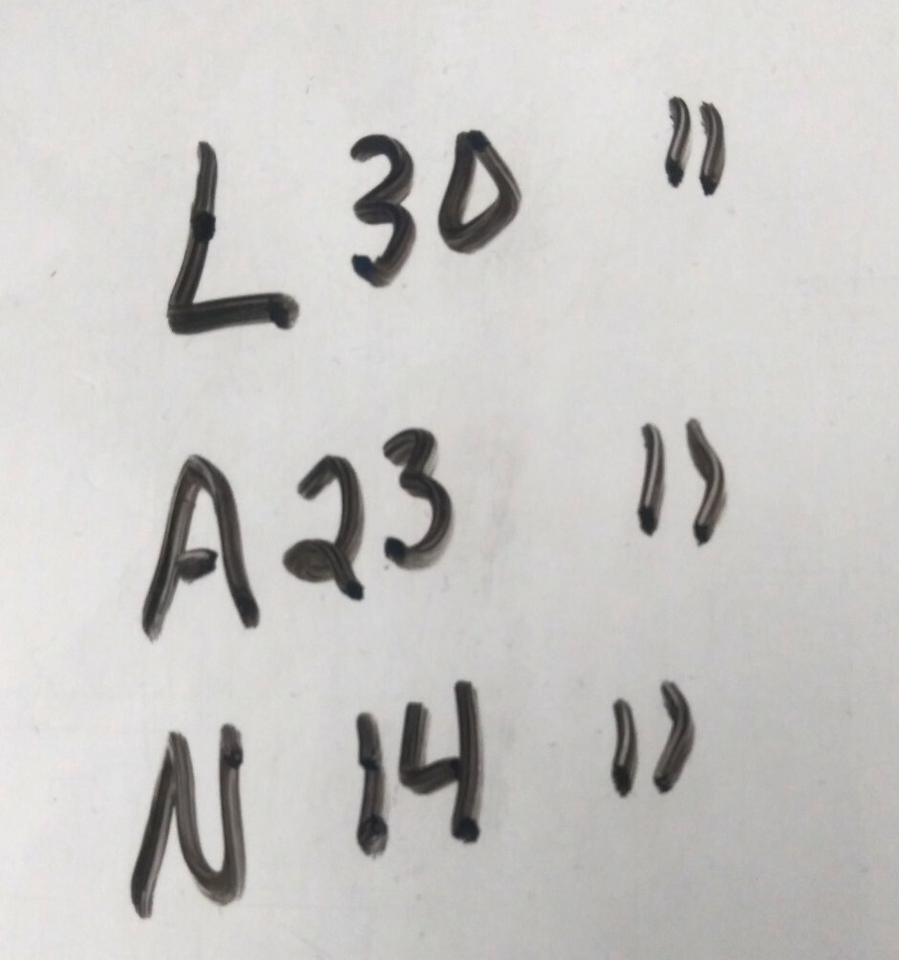 L 30 "
A 23 "
N 14 "